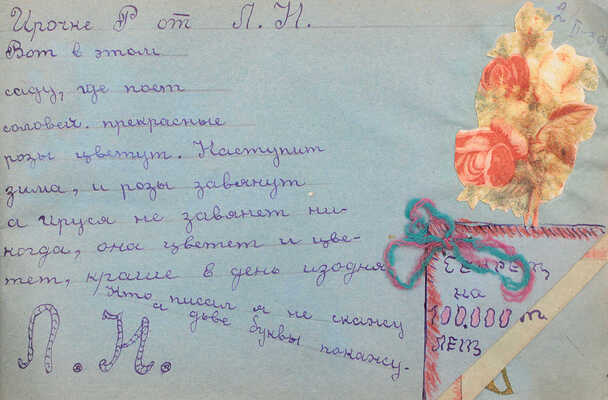 Ирочке Р от Л.И.
Вот в этом
саду, где поет
соловей. прекрасные
розы цветут. Наступит
зима, и розы завянут
а Ируся не завянет ни-
когда, она цветет и цве-
тет, краше в день изодня
Кто писал я не скажу
а две буквы покажу.
Л.И.
СЕКРЕТ
на
100.000 т
лет